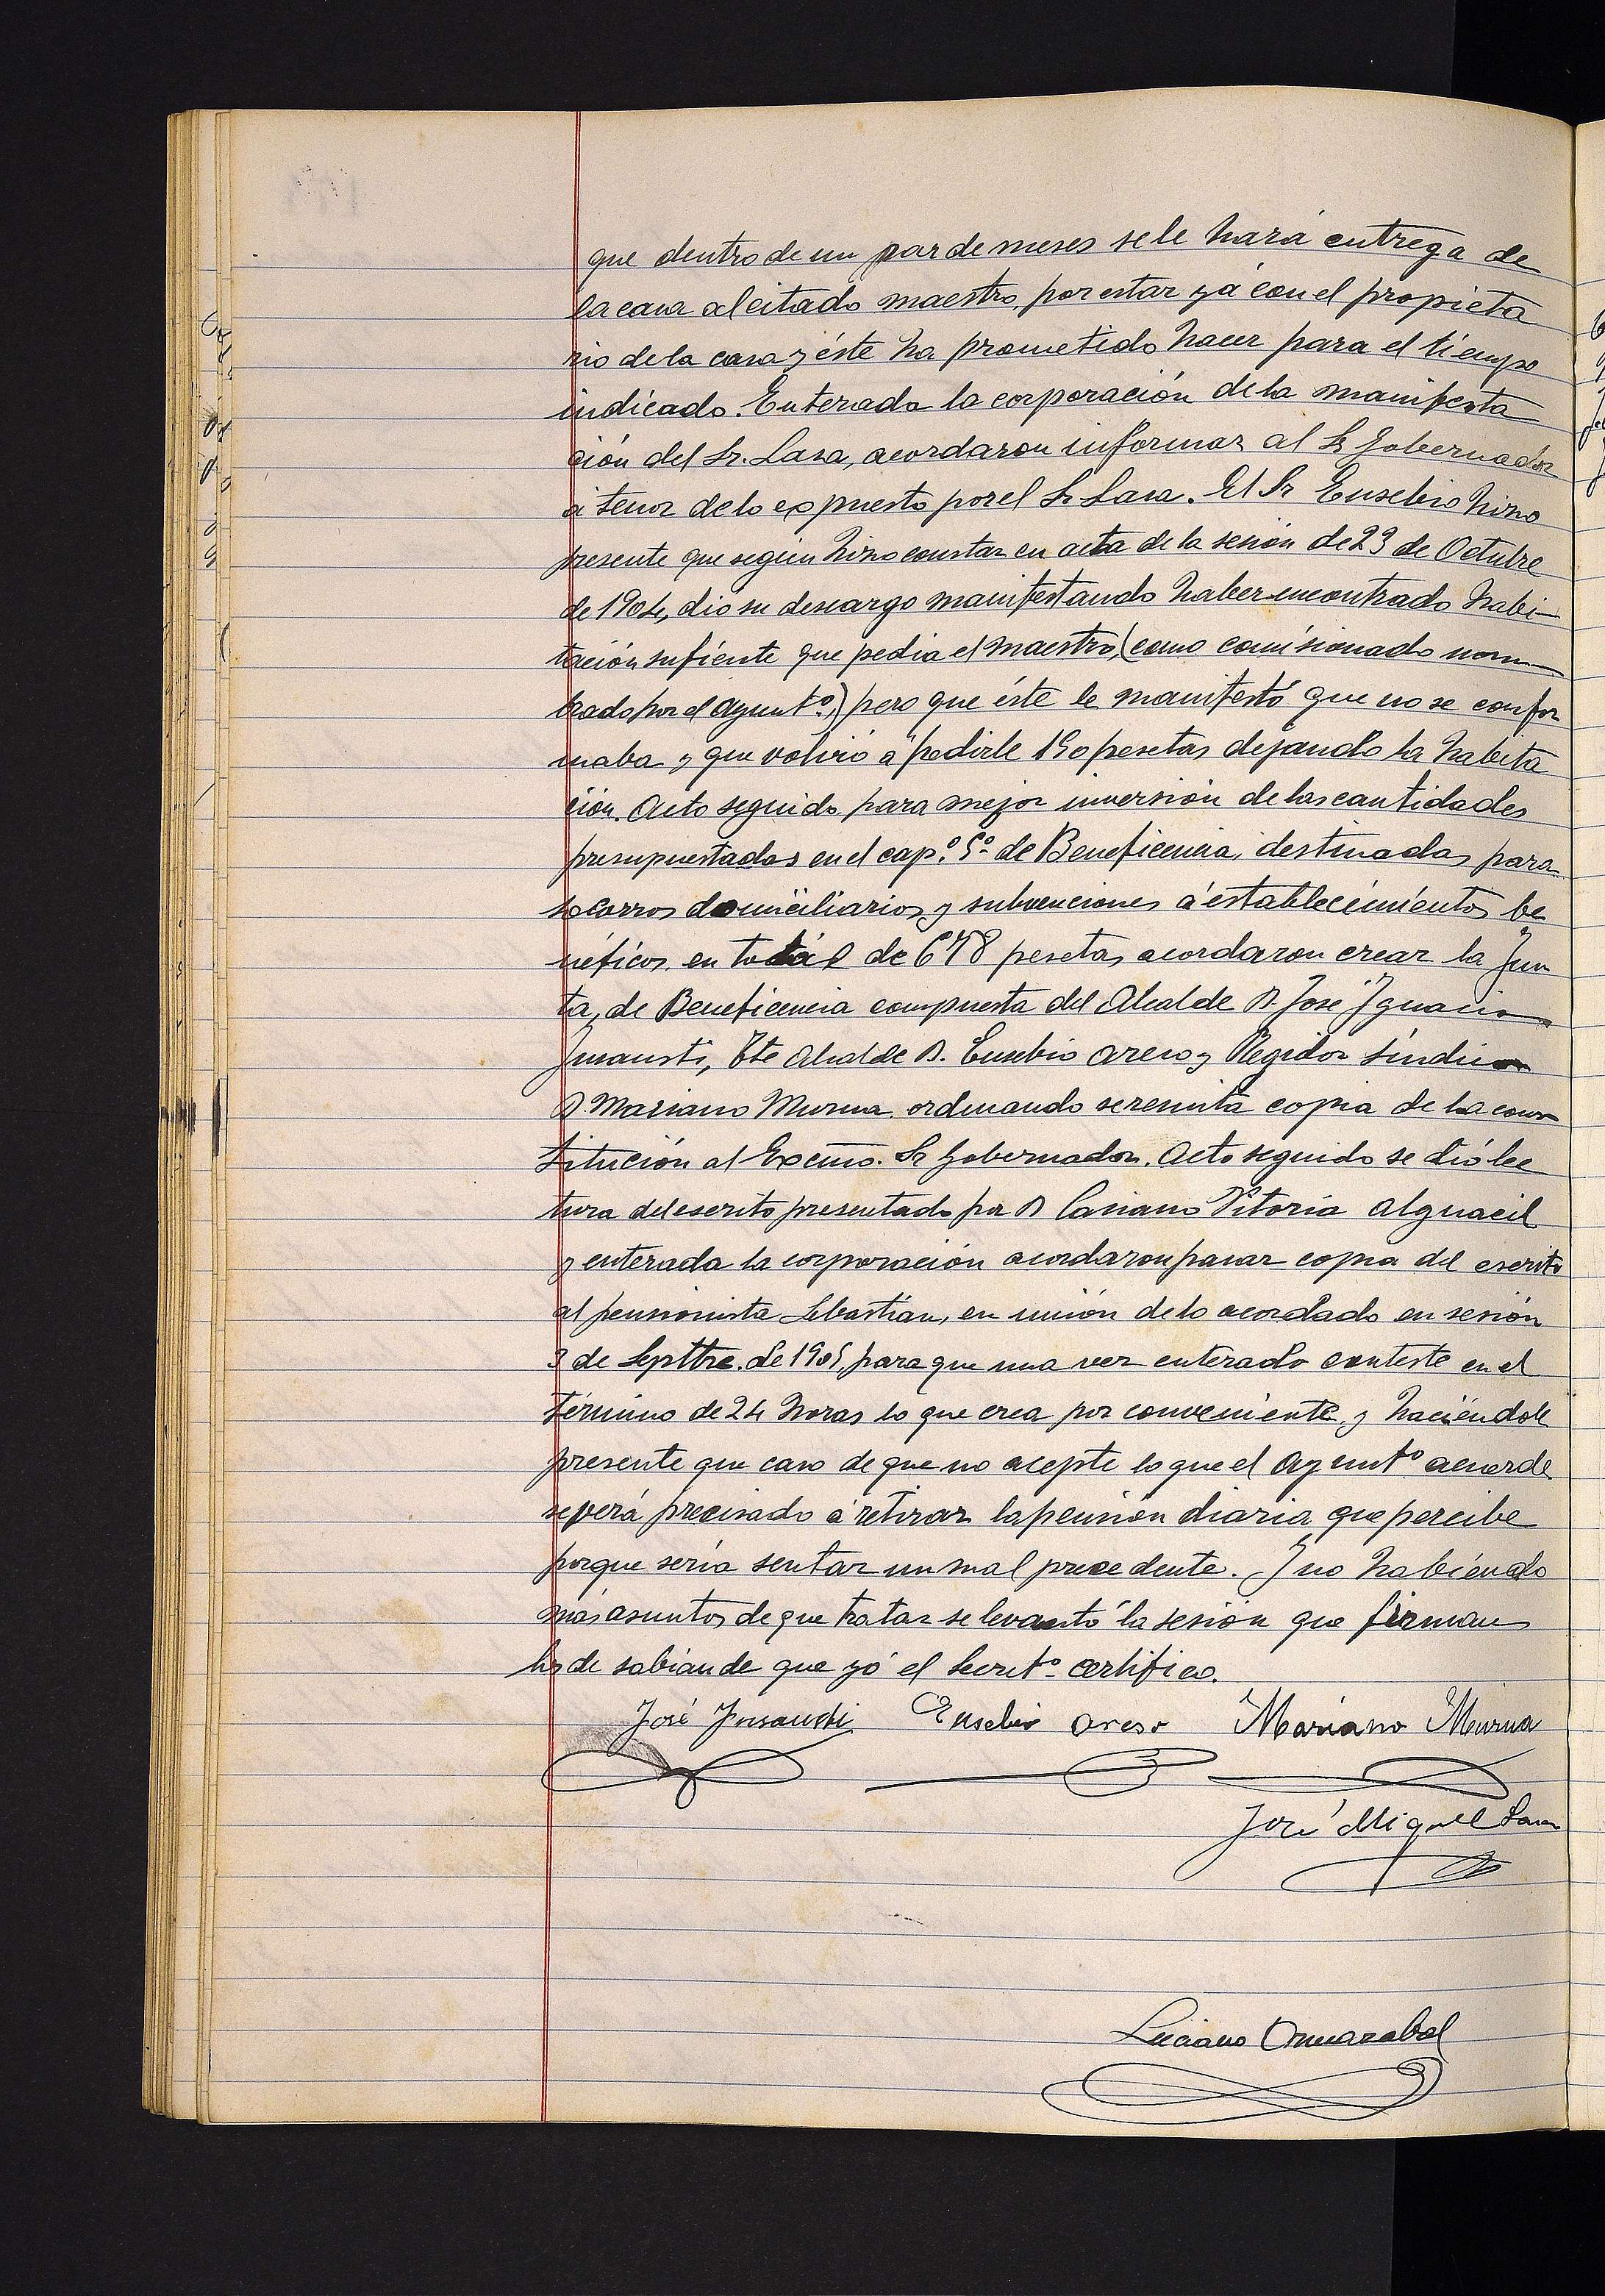 que dentro de un par de meses se le hará entrega de
la casa al citado maestro, por estar yá con el propieta
rio de la casa y éste ha prometido hacer para el tiempo
indicado. Enterada la corporación de la manifesta
ción del Sr. Lasa, acordaron informar al Sr Gobernador
á tenor de lo expuesto por el Sr Lasa. El Sr Eusebio hizo
presente que según hizo constar en acta de la sesión de 23 de Octubre
de 1904, dio su descargo manifestando haber encontrado habi-
tación sufiente que pedia el maestro, (como comisionado nom
brado por el Ayuntº.) pero que éste le manifestó que no se confor
maba y que volvió á pedirle 150 pesetas dejando la habita
ción. Acto seguido para mejor inversión de las cantidades
presupuestadas en el cap.º 5º de Beneficencia, destinadas para
socorros domiciliarios y subvenciones á establecimientos be
néficos, en total de 678 pesetas acordaron crear la Jun
ta, de Beneficencia compuesta del Alcalde D. José Ignacio
Insausti, Tte Alcalde D. Eusebio Areso y Regidor Síndico
D. Mariano Murua ordenando se remita copia de la cons
titución al Excmo. Sr Gobernador. Acto seguido se dió lec
tura del escrito presentado por D Casiano Vitoria Alguacil
y enterada la corporación acordaron pasar copia del escrito
al pensionista Sebastian, en unión de lo acordado en sesión
3 de Septtre. de 1905, para que una vez enterado conteste en el
término de 24 horas lo que crea por conveniente, y haciéndole
presente que caso de que no acepte lo que el Ayuntº acuerde
se verá precisado á retirar la pensión diaria que percibe
porque seria sentar un mal precedente. Y no habiendo
más asuntos de que tratar se levantó la sesión que firman
los de sabian de que yó el Secretº. certifico.
José Insausti Eusebio Areso Mariano Murua
José Miguel Lasa
Luciano Ormazabal